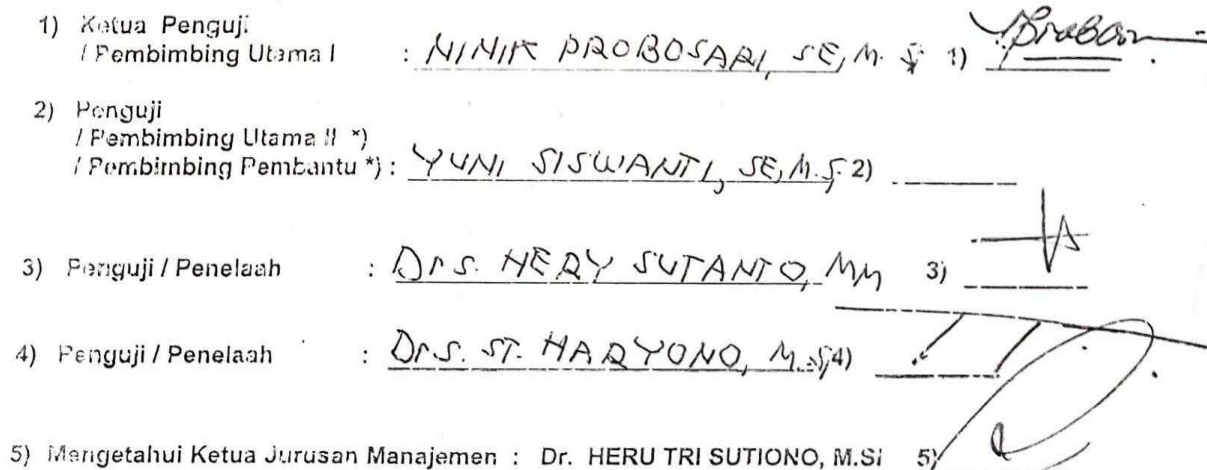 1) Ketua Penguji
/ Pembimbing Utama I : NINIK PROBOSARI, SE, M. Si 1)
2) Penguji
/ Pembimbing Utama II *)
/ Pembimbing Pembantu *) : YUNI SISWANTI, SE, M.Si 2)
3) Penguji / Penelaah : Drs. HERY SUTANTO, MM 3)
4) Penguji / Penelaah : Drs. ST. HARYONO, M.Si 4)
5) Mengetahui Ketua Jurusan Manajemen : Dr. HERU TRI SUTIONO, M.Si 5)